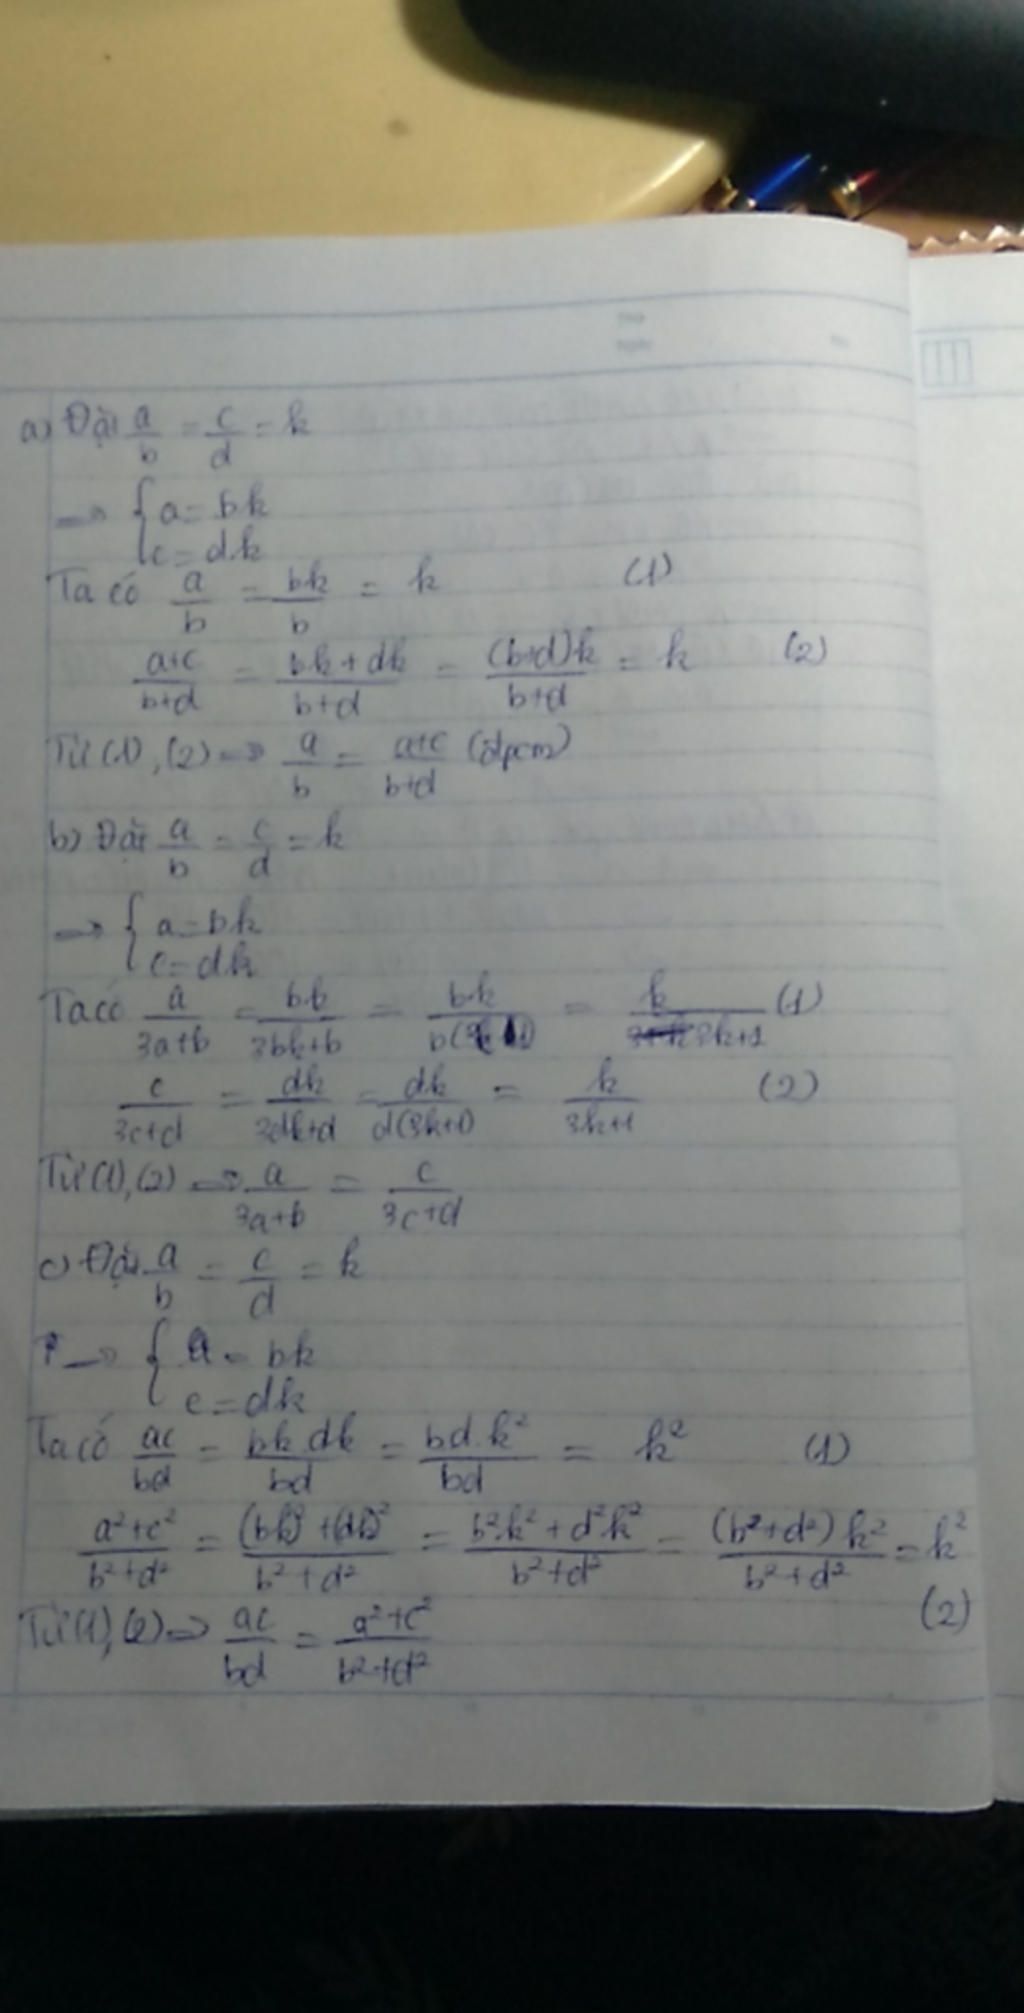 a) Đặt a/b = c/d = k
=> { a = bk
c = dk
Ta có a/b = bk/b = k (1)
a+c/b+d = bk+dk/b+d = (b+d)k/b+d = k (2)
Từ (1), (2) => a/b = a+c/b+d (đpcm)
b) Đặt a/b = c/d = k
=> { a = bk
c = dk
Ta có a/3a+b = bk/3bk+b = bk/b(3k+1) = k/3k+1 (1)
c/3c+d = dk/3dk+d = dk/d(3k+1) = k/3k+1 (2)
Từ (1), (2) => a/3a+b = c/3c+d
c) Đặt a/b = c/d = k
=> { a = bk
c = dk
Ta có ac/bd = bk.dk/bd = bd.k²/bd = k² (1)
a²+c²/b²+d² = (bk)²+(dk)²/b²+d² = b².k²+d²k²/b²+d² = (b²+d²)k²/b²+d² = k²
(2)
Từ (1), (2) => ac/bd = a²+c²/b²+d²